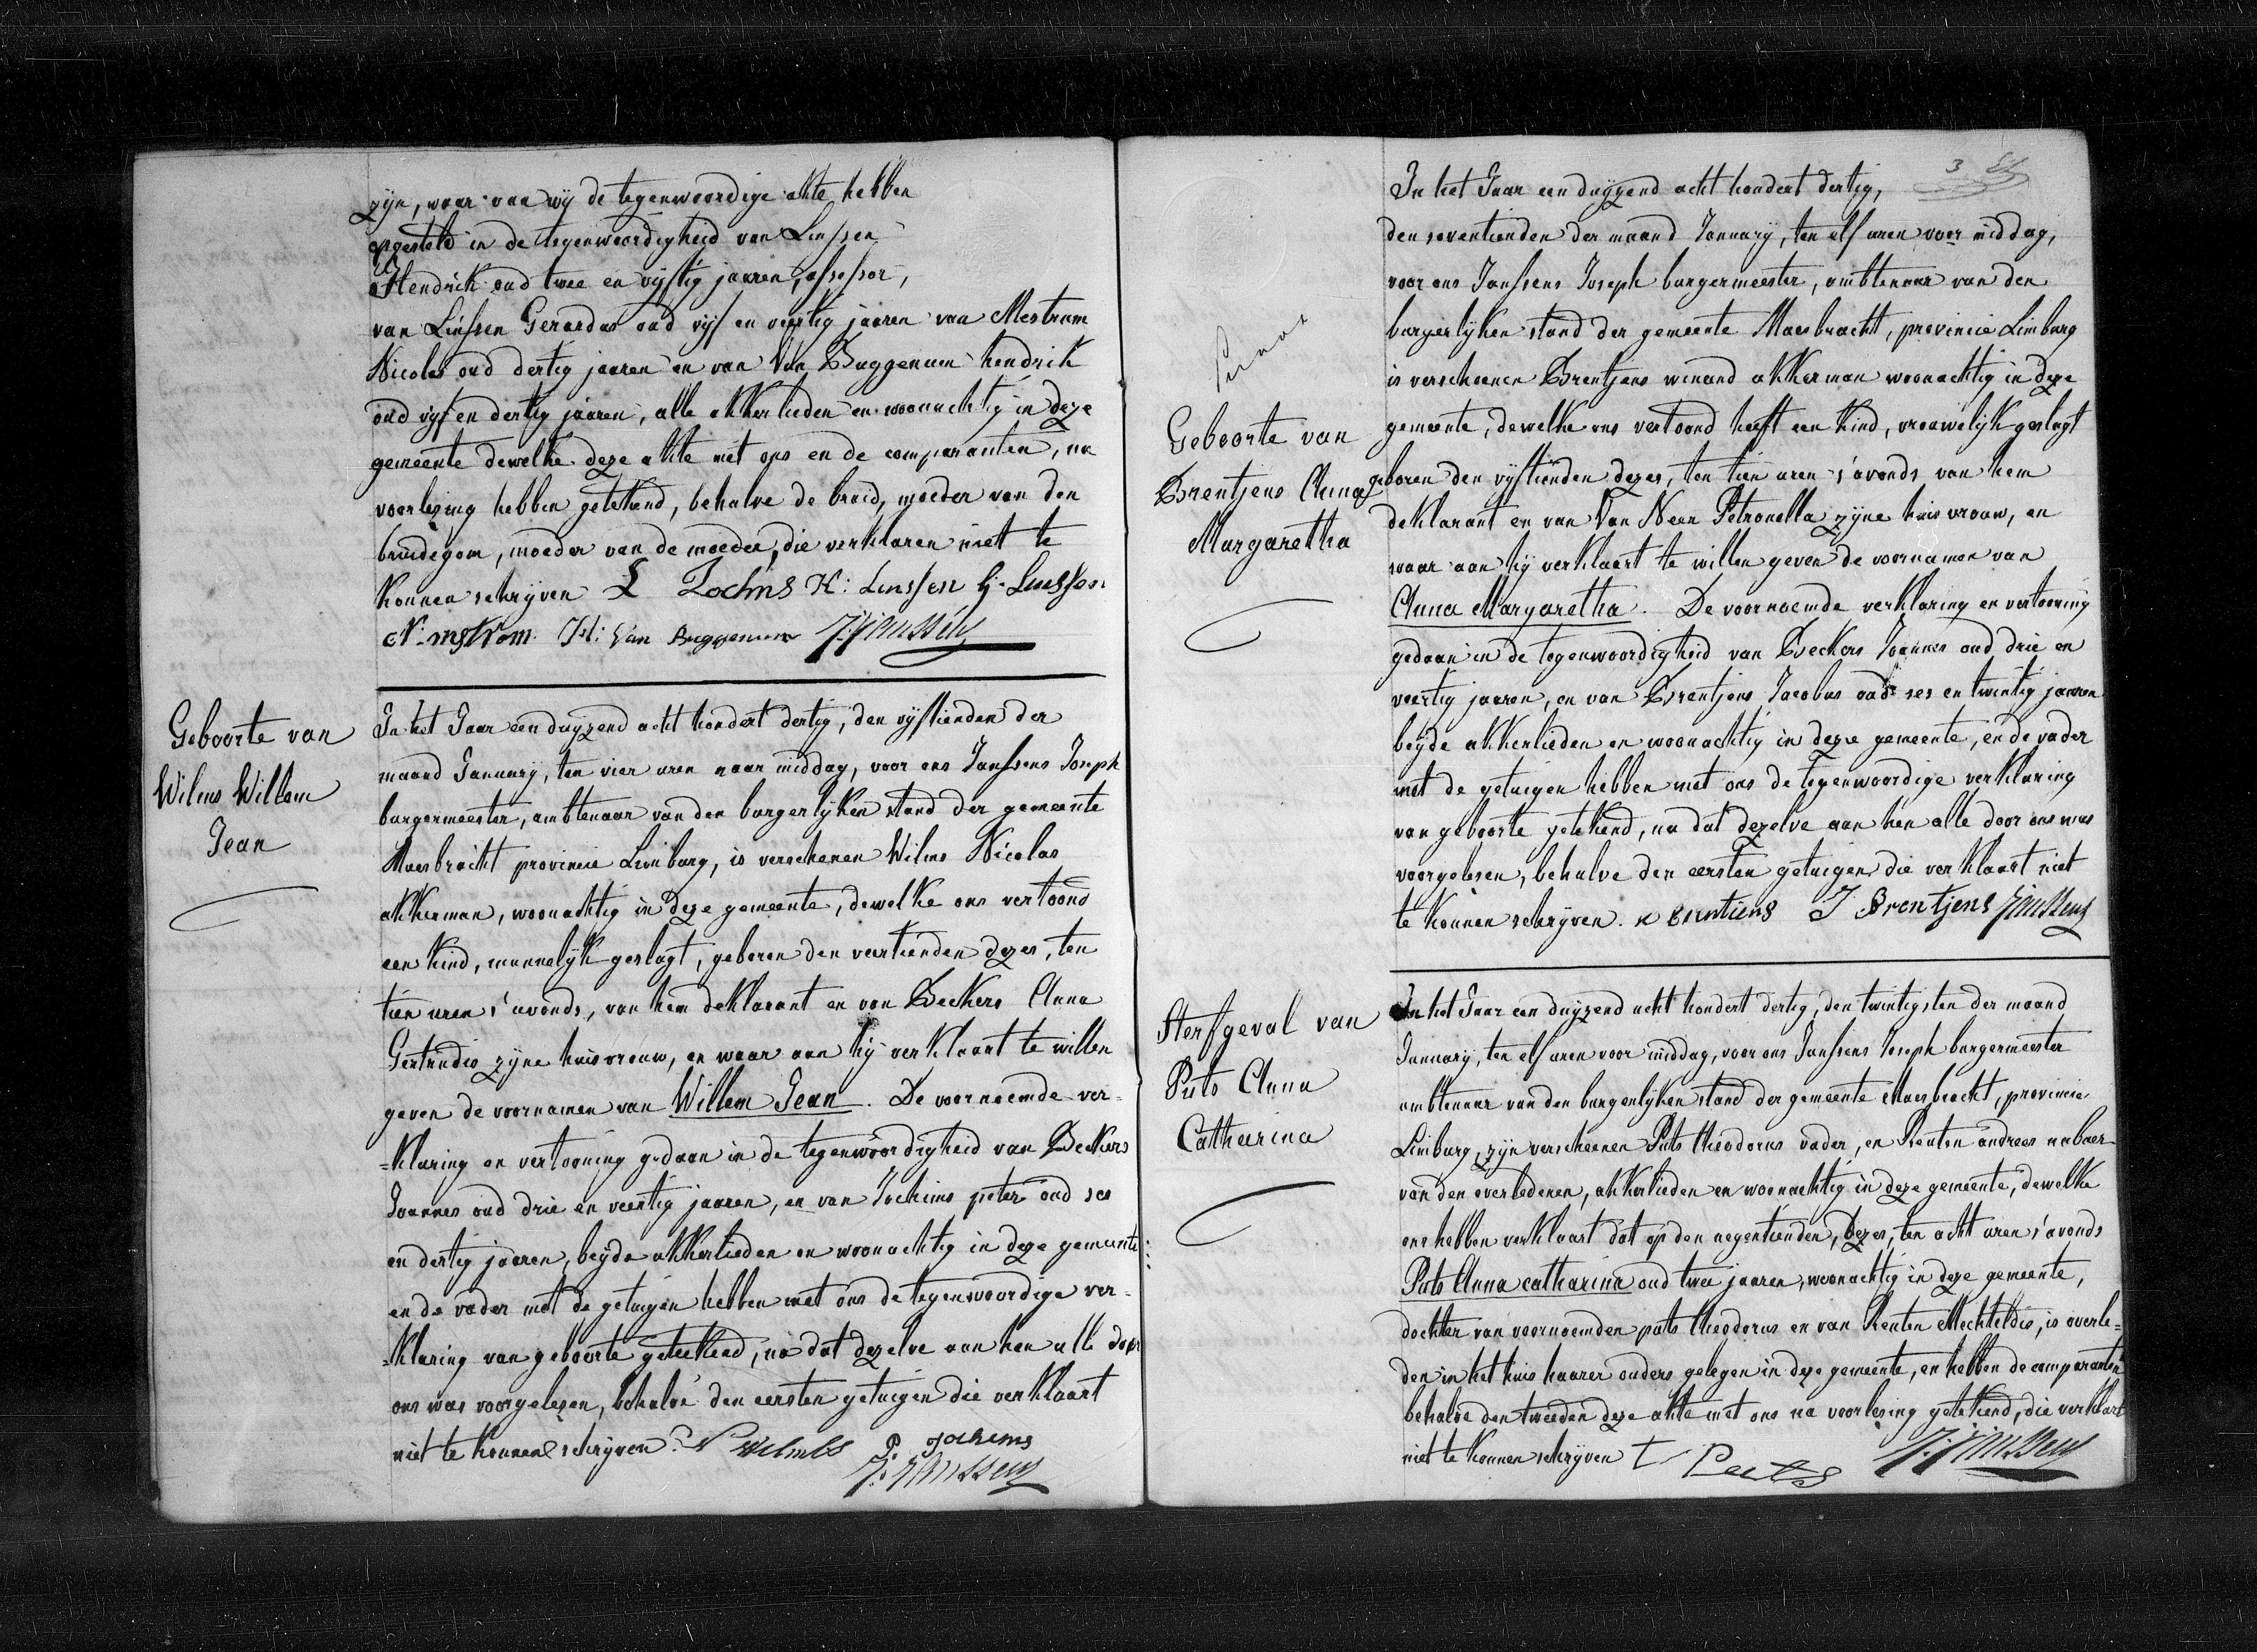 zijn, waar van wij de tegenwoordige akte hebben
opgesteld in de tegenwoordigheid van Linssen
Hendrik oud twee en vijftig jaaren, assessor,
van Linssen Gerardus oud vijf en veertig jaaren van Mestrum
Nicolas oud dertig jaaren en van Van Buggenum hendrik
oud vijf en dertig jaaren, alle akkerlieden en woonachtig in deze
gemeente dewelke deze akte met ons en de comparanten, na
voorlezing hebben getekend, behalve de bruid, moeder van den
bruidegom, moeder van de moeder, die verklaren niet te
konnen schrijven L Jochms H: Linssen G. Linssen
N: mstrom. H: Van Buggenum J:Janssens
Geboorte van
Wilms Willem
Jean
In het Jaar een duijzend acht hondert dertig, den vijftienden der
maand January, ten vier uren naar middag, voor ons Janssens Joseph
burgermeester, ambtenaar van den burgerlijken stand der gemeente
Maesbracht provincie Limburg, is verschenen Wilms Nicolas
akkerman, woonachtig in deze gemeente, dewelke ons vertoond
een kind, mannelijk geslagt, geboren den veertienden dezes, ten
tien uren s'avonds, van hem deklarant en van Beckers Anna
Gertrudis zijne huisvrouw, en waar aan hij verklaart te willen
geven de voornamen van Willem Jean. De voornoemde ver=
=klaring en vertooning gedaan in de tegenwoordigheid van Beckers
Joannes oud drie en veertig jaaren, en van Jochims peter oud ses
en dertig jaaren, beijde akkerlieden en woonachtig in deze gemeente
en de vader met de getuigen hebben met ons de tegenwoordige ver=
=klaring van geboorte geteekend, na dat dezelve aan hen alle door
ons was voorgelezen, behalve den eersten getuigen die verklaart
niet te konnen schrijven. N Wilmbs P. Jochims
J:Janssens
3
In het Jaar een duijzend acht hondert dertig,
den seventienden der maand January, ten elf uren voor middag,
voor ons Janssens Joseph burgermeester, ambtenaar van den
burgerlijken stand der gemeente Maesbracht, provincie Limburg
is verscheenen Brentjens winand akkerman woonachtig in deze
gemeente, dewelke ons vertoond heeft een kind, vrouwelijk geslagt
Geboorte van
Brentjens Anna
Margaretha
geboren den vijftienden dezes, ten tien uren s'avonds van hem
deklarant en van Van Neer Petronella zijne huisvrouw, en
waar aan hij verklaart te willen geven de voornamen van
Anna Margaretha. De voornoemde verklaring en vertooning
gedaan in de tegenwoordigheid van Beckers Joannes oud drie en
veertig jaaren, en van Brentjens Jacobus oud ses en twintig jaaren
beijde akkerlieden en woonachtig in deze gemeente, en de vader
met de getuigen hebben met ons de tegenwoordige verklaring
van geboorte getekend, na dat dezelve aan hen alle door ons was
voorgelesen, behalve den eersten getuigen die verklaart niet
te konnen schrijven. w brentiens J Brentjens J:Janssens
Sterfgeval van
Puts Anna
Catharina
In het Jaar een duijzend acht hondert dertig, den twintigsten der maand
January, ten elf uren voor middag, voor ons Janssens Joseph burgermeester
ambtenaar van den burgerlijken stand der gemeente Maesbracht, provincie
Limburg, zijn verscheenen Puts theodorus vader, en Renten andreas nabuer
van den overledenen, akkerlieden en woonachtig in deze gemeente, dewelke
ons hebben verklaart dat op den negentienden, dezes, ten acht uren s'avonds
Puts Anna catharina oud twee jaaren, woonachtig in deze gemeente,
dochter van voornoemden puts theodorus en van Renten Mechteldis, is overle=
den in het huis haarer ouders gelegen in deze gemeente, en hebben de comparanten
behalve den tweeden deze akte met ons na voorlezing getekend, die verklaart
niet te konnen schrijven t Puts J:Janssens